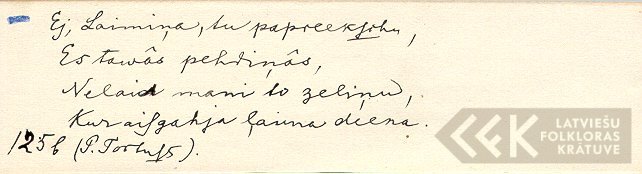 Ej, Laimiņa, tu papreekschu,
Es tawâs pehdiņâs,
Nelaid mani to zeliņu,
Kur aisgahja ļauna deena.
125b (P.
LATVIEŠU
FOLKLORAS
KRĀTUVE